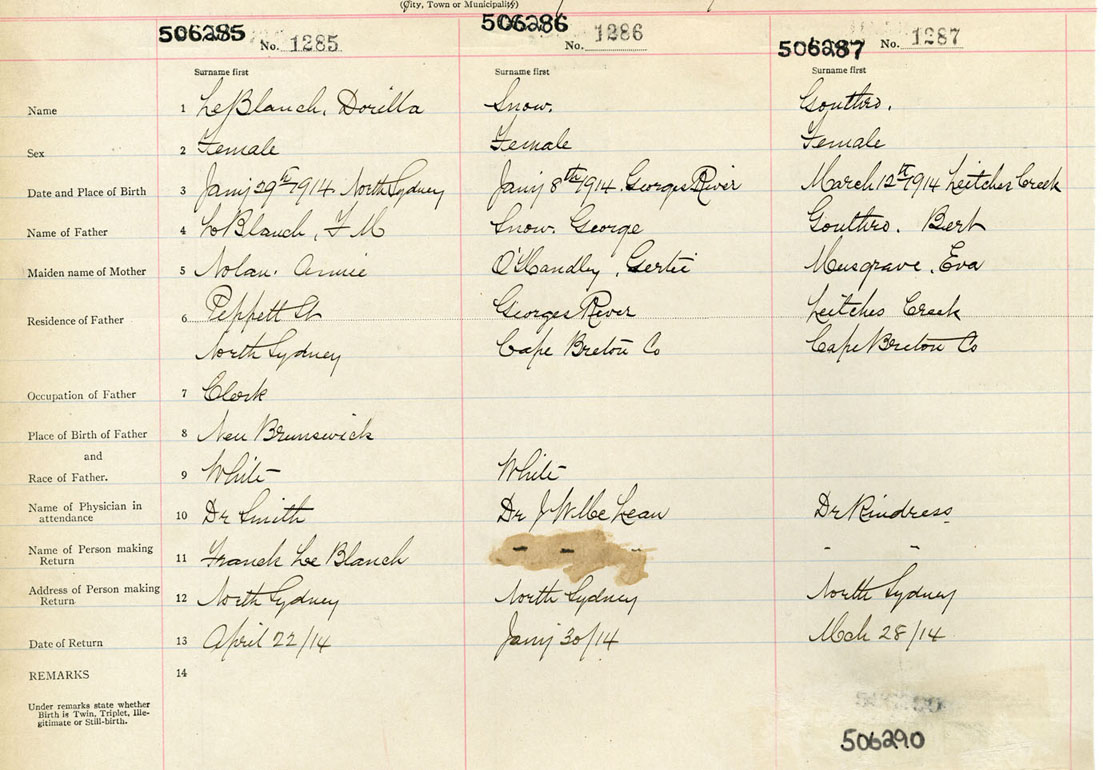 (City, Town or Municipality)
506285 No. 1285 506286 No. 1286 506287 No. 1287
Surname first Surname first Surname first
Name 1 LeBlanch, Dorilla Snow. Gouthro.
Sex 2 Female Female Female
Date and Place of Birth 3 Jany 29th 1914 North Sydney Jany 8th 1914. Georges River March 12th 1914 Leitches Creek
Name of Father 4 LeBlanch, F M Snow. George Gouthro. Bert
Maiden name of Mother 5 Nolan. Annie O'Handley, Gertie Musgrave. Eva
Residence of Father 6 Peppett St Georges River Leitches Creek
North Sydney Cape Breton Co Cape Breton Co
Occupation of Father 7 Clerk
Place of Birth of Father 8 New Brunswick
and
Race of Father. 9 White White
Name of Physician in attendance 10 Dr Smith Dr J W McLean Dr Rindress
Name of Person making Return 11 Franck Le Blanch - - - - -
Address of Person making Return 12 North Sydney North Sydney North Sydney
Date of Return 13 April 22/14 Jany 30/14 Mch 28/14
REMARKS 14
Under remarks state whether
Birth is Twin, Triplet, Ille-
gitimate or Still-birth.
506290